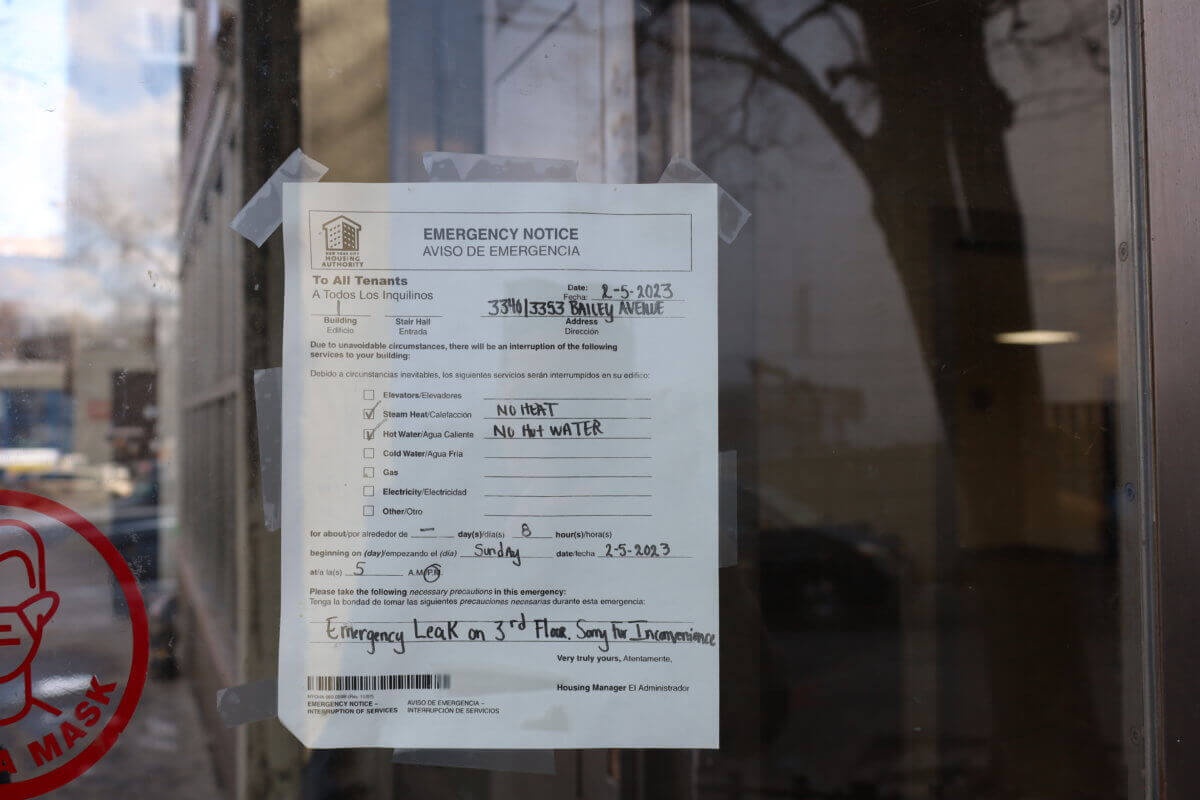 NEW YORK CITY
HOUSING
AUTHORITY
EMERGENCY NOTICE
AVISO DE EMERGENCIA
To All Tenants
A Todos Los Inquilinos
Date:
Fecha: 2-5-2023
1
Building
Edificio
Stair Hall
Entrada
3340/3353 BAILEY AVENUE
Address
Dirección
Due to unavoidable circumstances, there will be an interruption of the following
services to your building:
Debido a circunstancias inevitables, los siguientes servicios serán interrumpidos en su edificio:
Elevators/Elevadores
Steam Heat/Calefacción NO HEAT
Hot Water/Agua Caliente No Hot WATER
Cold Water/Agua Fria
Gas
Electricity/Electricidad
Other/Otro
for about/por alrededor de — day(s)/día(s) 8 hour(s)/hora(s)
beginning on (day)/empezando el (día) Sunday date/fecha 2-5-2023
at/a la(s) 5 A.M./P.M.
Please take the following necessary precautions in this emergency:
Tenga la bondad de tomar las siguientes precauciones necesarias durante esta emergencia:
Emergency Leak on 3rd Floor. Sorry For Inconvenience
Very truly yours, Atentamente,
Housing Manager El Administrador
EMERGENCY NOTICE – AVISO DE EMERGENCIA –
INTERRUPTION OF SERVICES INTERRUPCIÓN DE SERVICIOS
A MASK